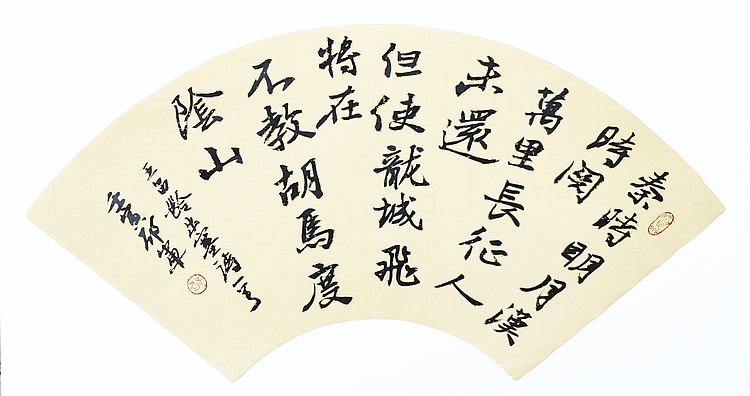 秦時明月漢
時関
萬里長征人
未還
但使龍城飛
將在
不教胡馬度
陰山
王昌齡出塞詩一首